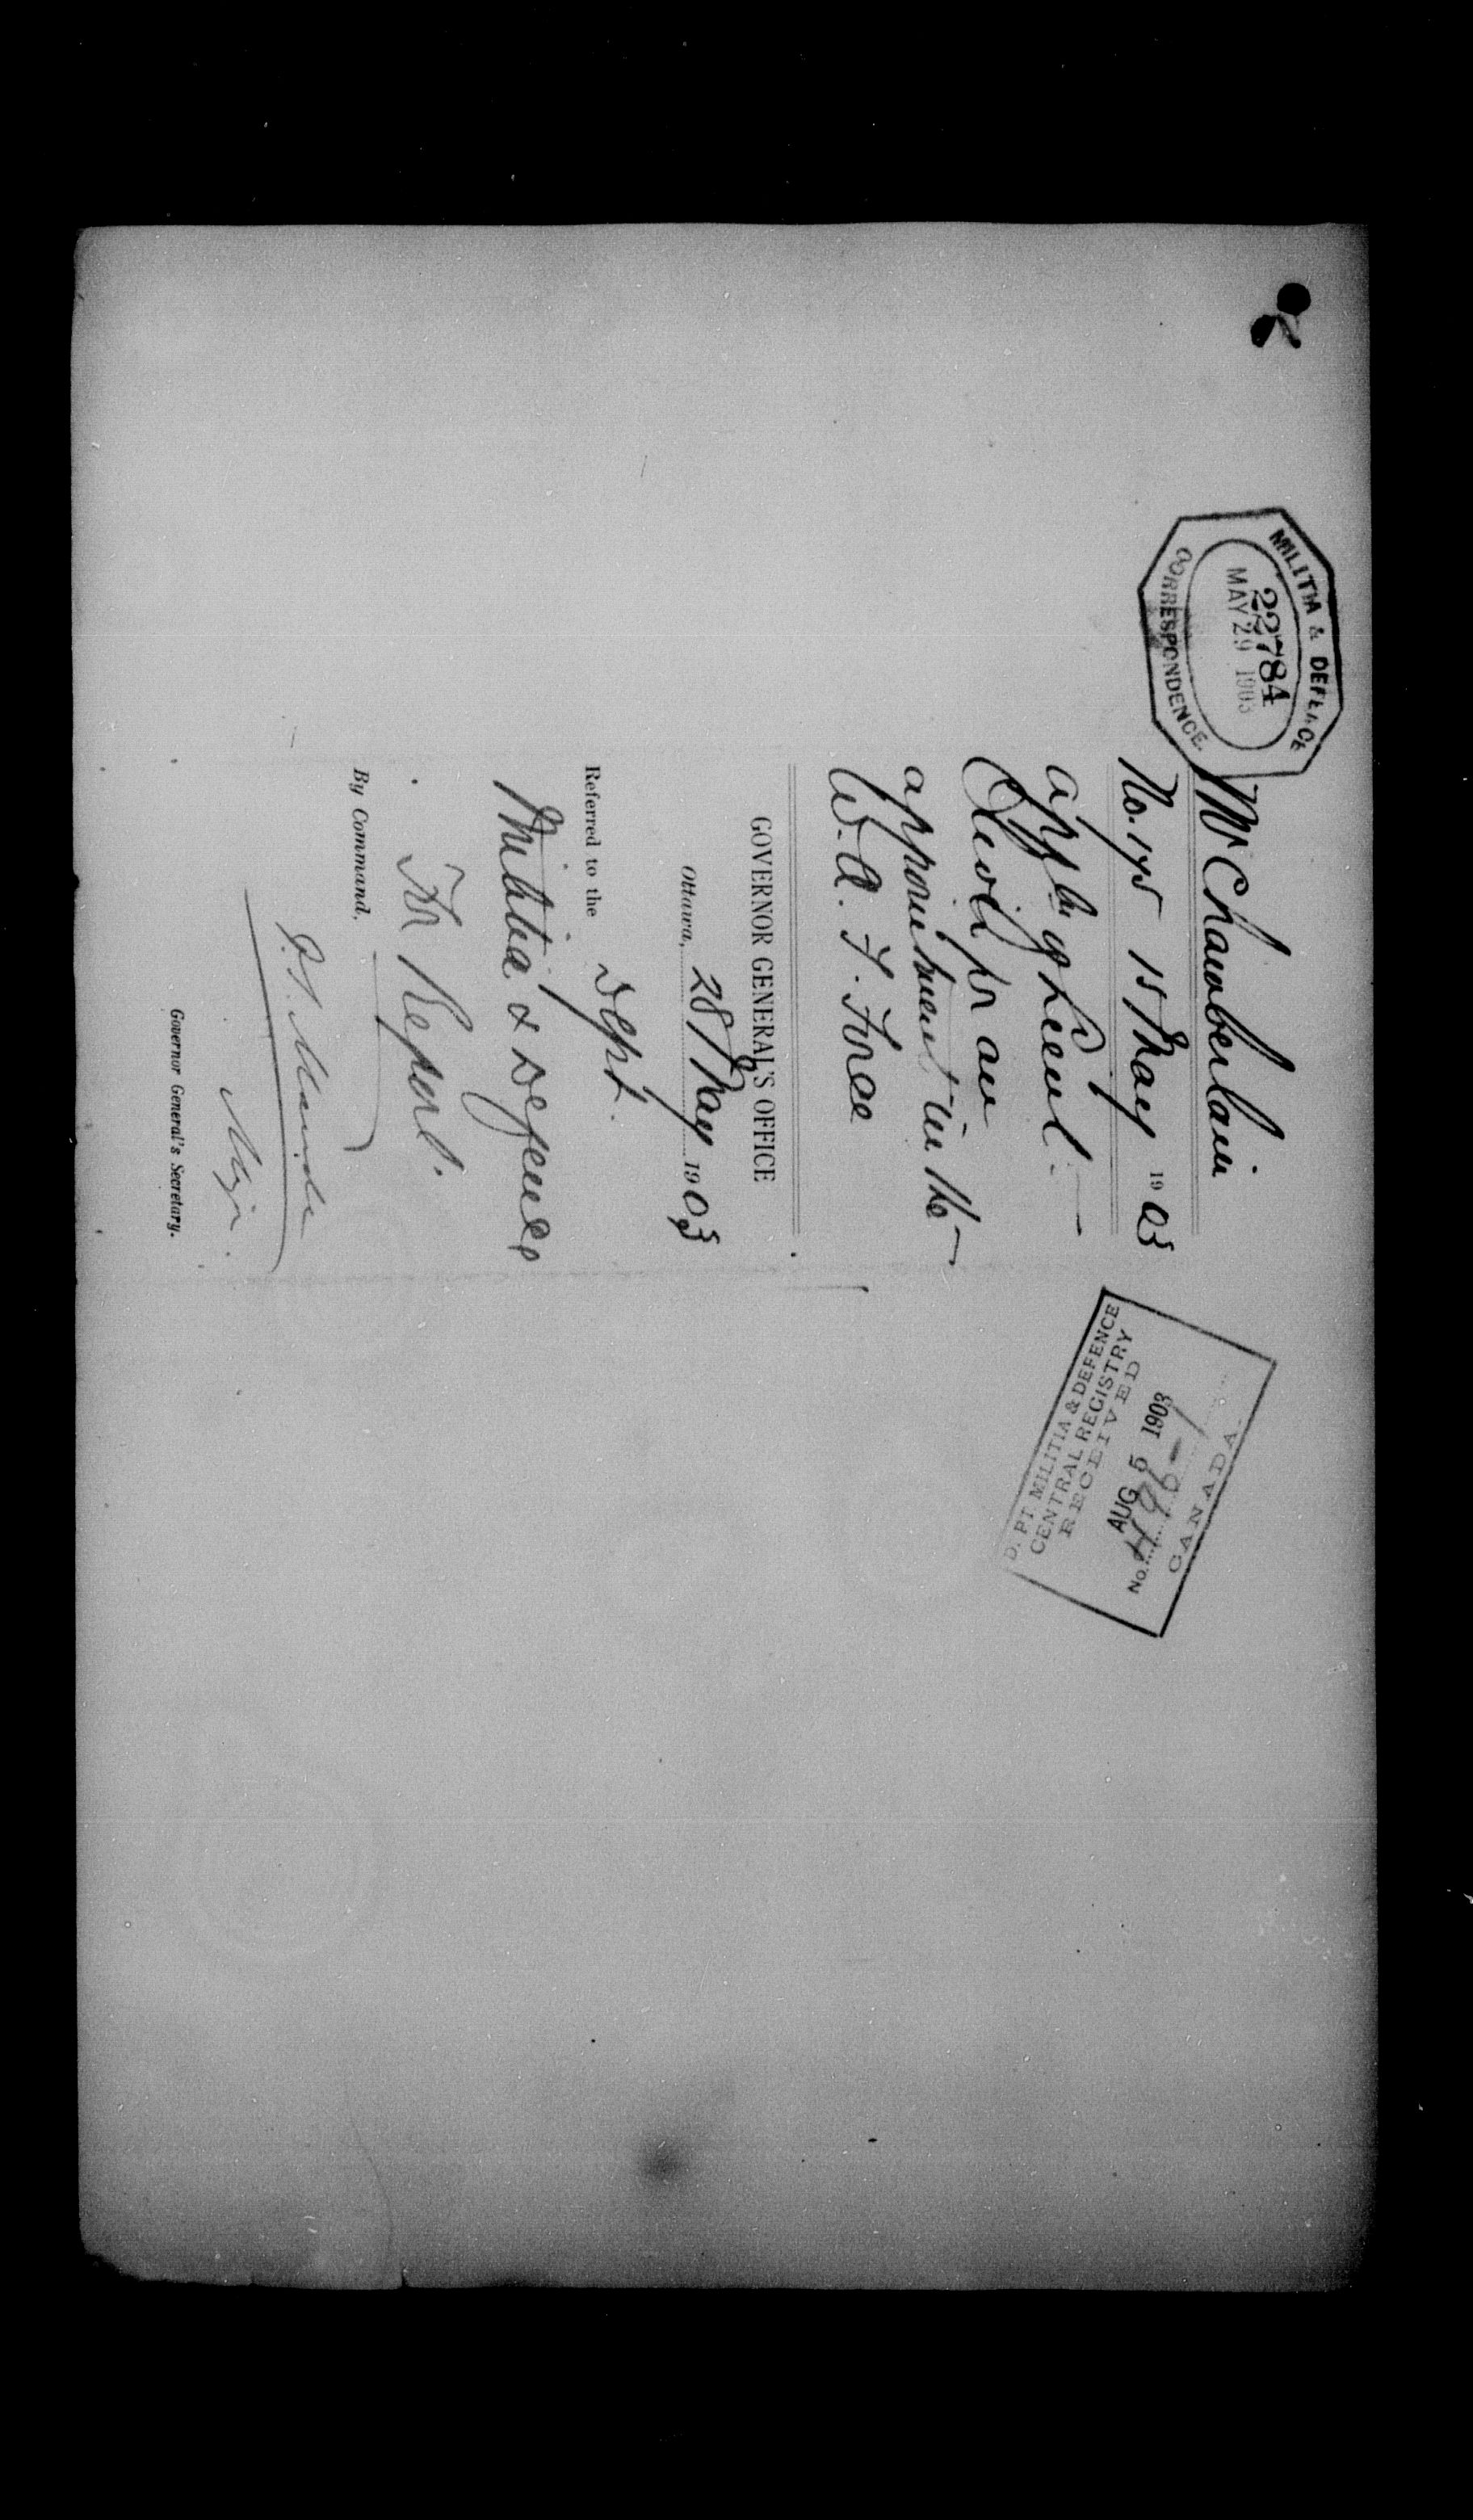 MILITIA & DEFENCE
22784
MAY 29 1903
CORRESPONDENCE.
Mr Chamberlain
No. 175 15 May 1903
appln of Lieut.
for an
appointment in the
W. A. F. Force
GOVERNOR GENERAL'S OFFICE
Ottawa, 28 May 1903
Referred to the
Dept.
Militia & Defence
For Report.
By Command,
Maude
Major
Governor General's Secretary.
DEPT MILITIA & DEFENCE
CENTRAL REGISTRY
RECEIVED
AUG 5 1903
No.
CANADA.